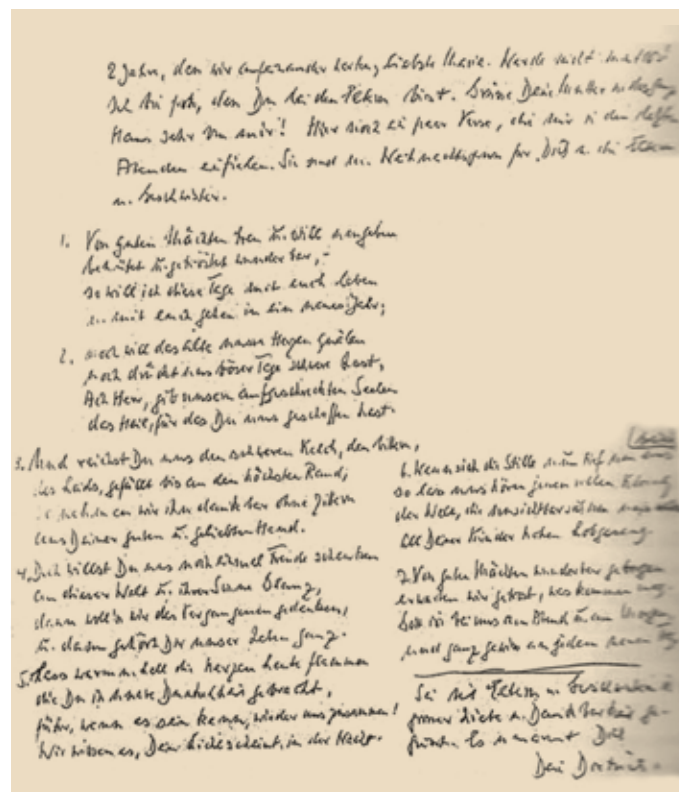 2 Jahre, dass wir aufeinander warten, liebste Maria. Werde nicht mutlos!
Ich bin froh, dass Du bei den Eltern bist. Grüsse Deine Mutter u. das ganze
Haus sehr von mir! Hier sind ein paar Verse, die mir in den letzten
Abenden einfielen. Sie sind der Weihnachtsgruss für Dich u. die Eltern
u. Geschwister.
1. Von guten Mächten treu u. still umgeben
behütet u. getröstet wunderbar, –
so will ich diese Tage mit euch leben
u. mit euch gehen in ein neues Jahr;
2. noch will das alte unsre Herzen quälen
noch drückt uns böser Tage schwere Last,
Ach Herr, gib unsern aufgescheuchten Seelen
das Heil, für das Du uns geschaffen hast.
3. Und reichst Du uns den schweren Kelch, den bittern,
des Leids, gefüllt bis an den höchsten Rand,
so nehmen wir ihn dankbar ohne Zittern
aus Deiner guten u. geliebten Hand.
4. Doch willst Du uns noch einmal Freude schenken
an dieser Welt u. ihrer Sonne Glanz,
dann woll'n wir des Vergangenen gedenken,
u. dann gehört Dir unser Leben ganz.
5. Lass warm u. hell die Kerzen heute flammen
die Du in unsere Dunkelheit gebracht,
führ, wenn es sein kann, wieder uns zusammen!
Wir wissen es, Dein Licht scheint in der Nacht.
6. Wenn sich die Stille nun tief um uns
so lass uns hören jenen vollen Klang
der Welt, die unsichtbar sich um uns
all Deiner Kinder hohen Lobgesang.
7. Von guten Mächten wunderbar geborgen
erwarten wir getrost, was kommen mag.
Gott ist bei uns am Abend u. am Morgen
und ganz gewiss an jedem neuen Tag.
Sei mit Eltern u. Geschwistern in
grosser Liebe u. Dankbarkeit ge-
grüsst. Es umarmt Dich
Dein Dietrich.